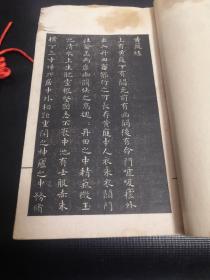 黃庭經
上有黃庭下有關元前有幽闕後有命門噓吸廬外
出入丹田審能行之可長存黃庭中人衣朱衣關門
壯籥蓋兩扉幽闕俠之高巍巍丹田之中精氣微玉
池清水上生肥靈根堅志不衰中池有士服赤朱
橫下三寸神所居中外相距重閉之神廬之中務脩